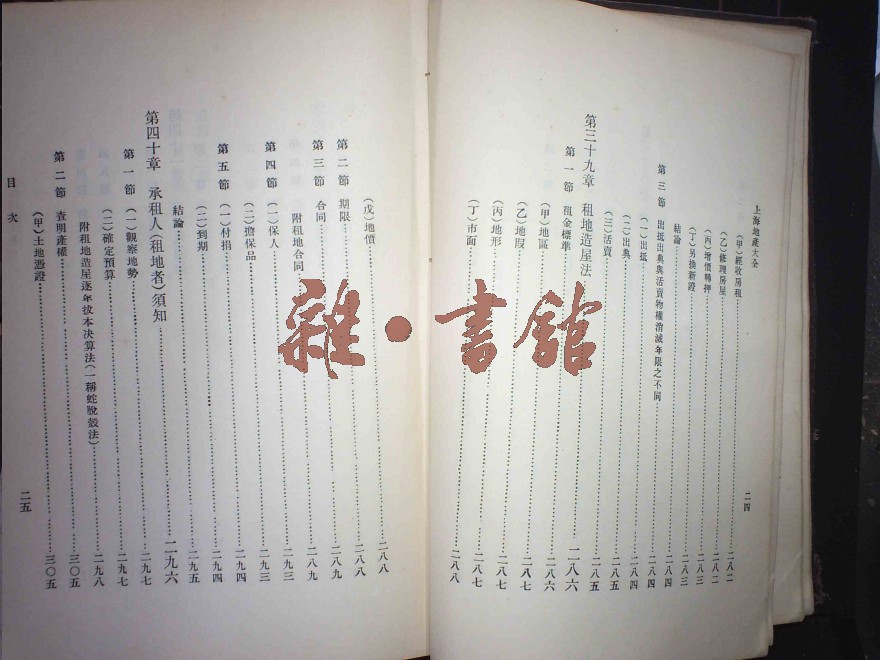 上海地產大全
二四
(甲)經收房租……二八二
(乙)修理房屋……二八二
(丙)增價轉押……二八二
(丁)另換新證……二八三
結論……二八三
第三節 出抵出典與活賣物權消滅年限之不同……二八四
(一)出抵……二八四
(二)出典……二八四
(三)活賣……二八五
第三十九章 租地造屋法……二八五
第一節 租金標準……二八六
(甲)地區……二八六
(乙)地段……二八七
(丙)地形……二八七
(丁)市面……二八八
(戊)地價……二八八
第二節 期限……二八九
第三節 合同……二八九
附租地合同……二九三
第四節 (一)保人……二九三
(二)擔保品……二九四
第五節 (一)付捐……二九四
(二)到期……二九五
結論……
第四十章 承租人(租地者)須知……二九六
第一節 (一)觀察地勢……二九七
(二)確定預算……二九七
附租地造屋逐年拔本決算法(一稱蛇脫殼法)……二九八
第二節 查明產權……三〇五
(甲)土地憑證……三〇五
目次
二五
雜·書館